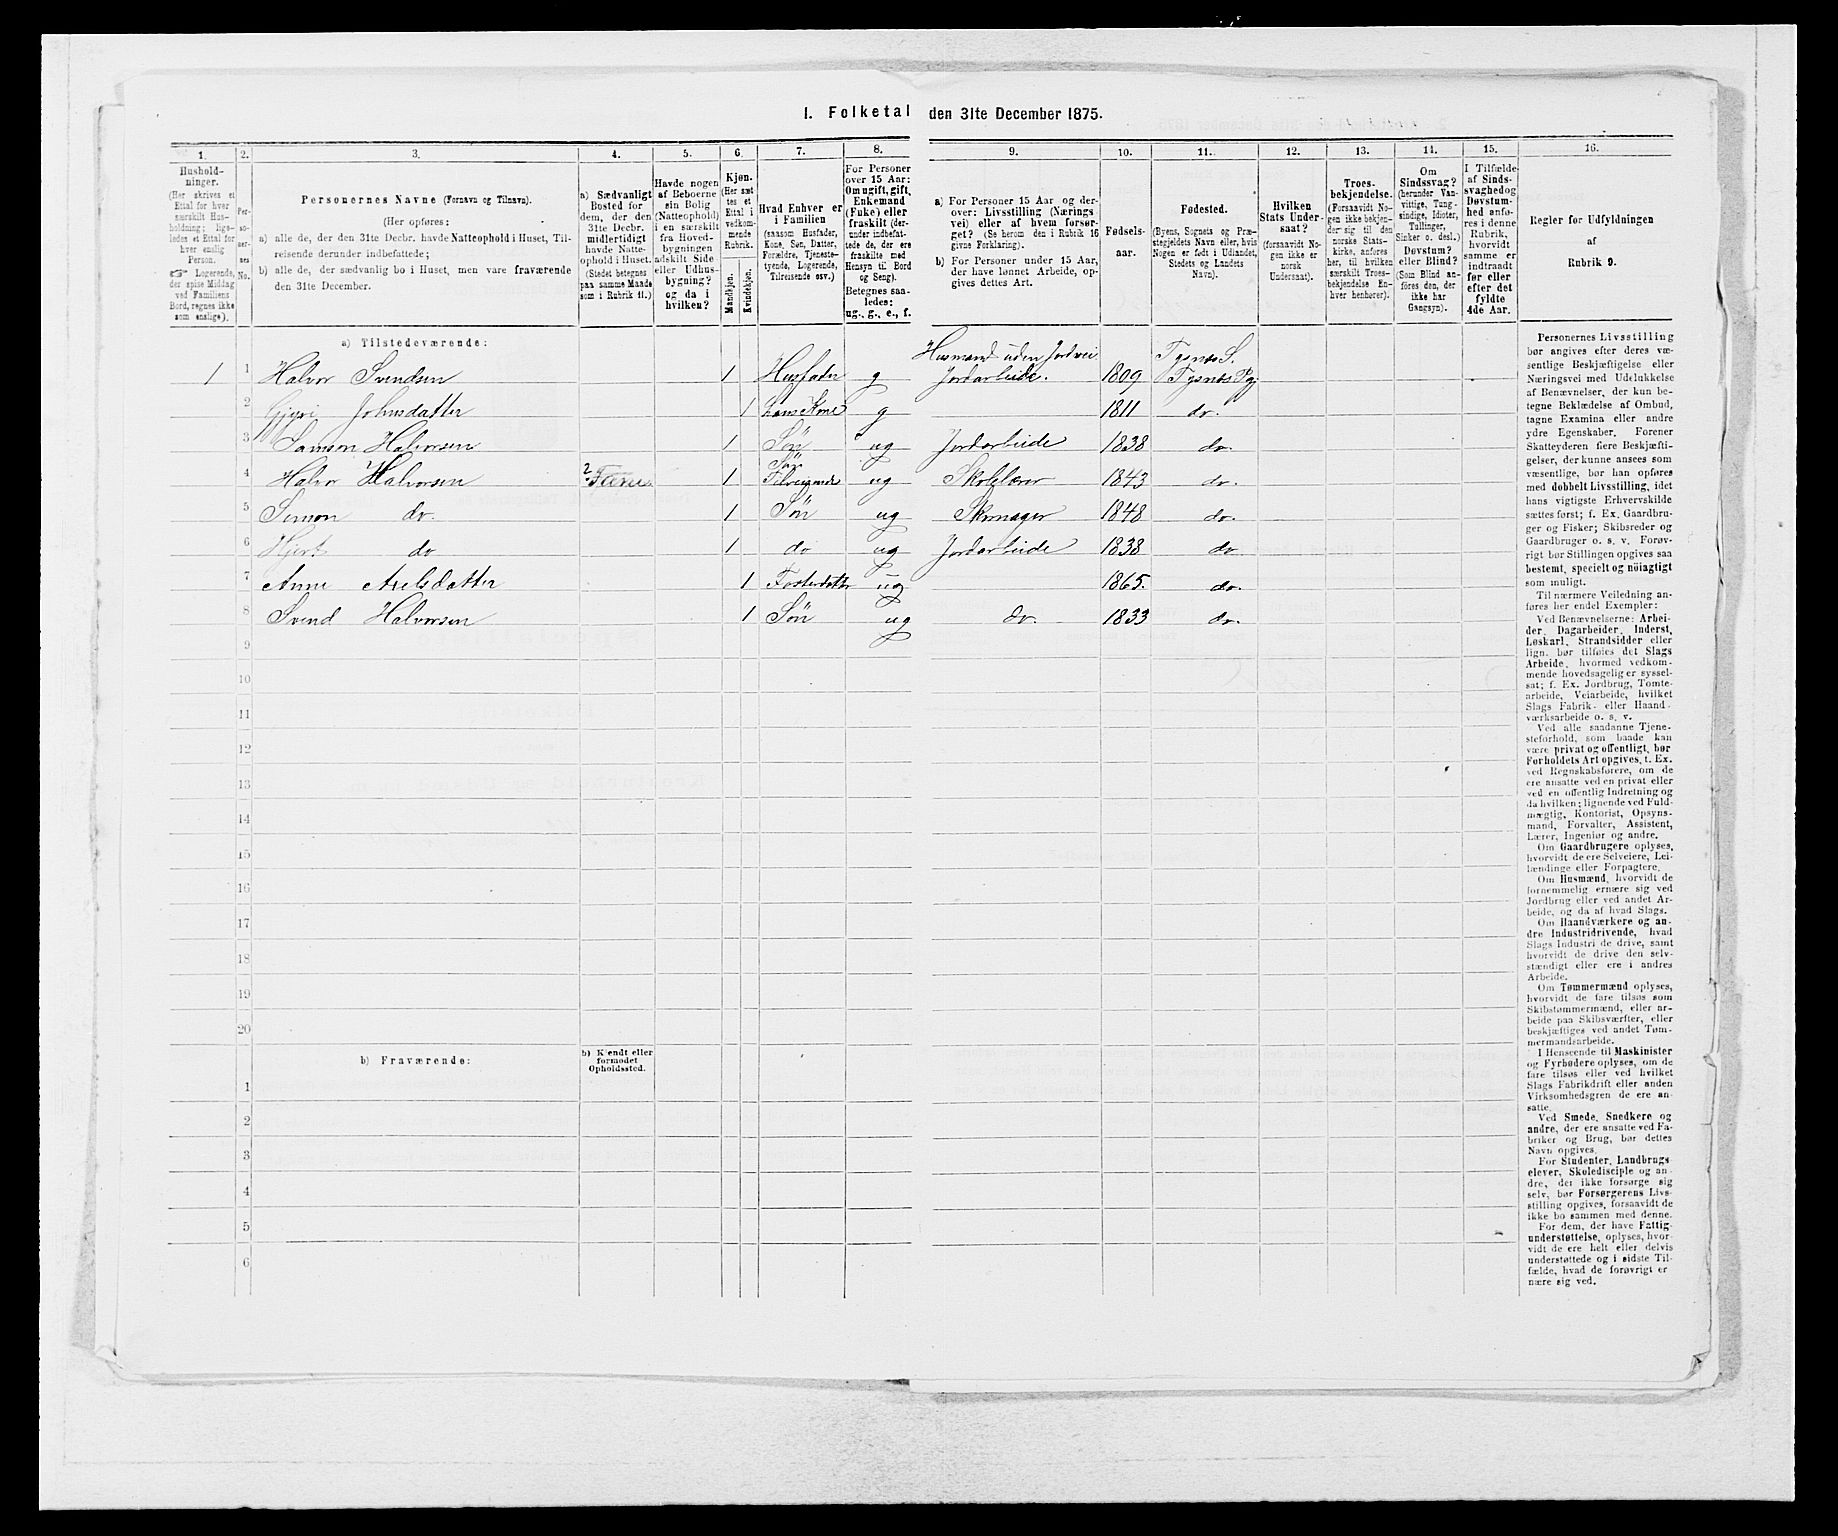 I. Folketal den 31te December 1875.
1. 2. 3. 4. 5. 6. 7. 8. 9. 10. 11. 12. 13. 14. 15. 16.
Husholdninger.
(Her skrives et
Ettal for hver
særskilt Husholdning; ligeledes et Ettal for
hver enslig
Person.
☞ Logerende,
der spise Middag
ved Familiens
Bord, regnes ikke
som enslige).
Personernes No.
Personernes Navne (Fornavn og Tilnavn).
(Her opføres:
a) alle de, der den 31te Decbr. havde Natteophold i Huset, Tilreisende derunder indbefattede;
b) alle de, der sædvanlig bo i Huset, men vare fraværende
den 31te December.
a) Sædvanligt
Bosted for
dem, der den
31te Decbr.
midlertidigt
havde Natteophold i Huset.
(Stedet betegnes
paa samme Maade
som i Rubrik 11.)
Havde nogen
af Beboerne
sin Bolig
(Natteophold)
i en særskilt
fra Hovedbygningen
adskilt Side
eller Udhusbygning?
og da i
hvilken?
Kjøn.
(Her sættes et
Ettal i
vedkommende
Rubrik.
Mandkjøn.
Kvindekjøn.
Hvad Enhver er
i Familien
(saasom Husfader,
Kone, Søn, Datter,
Forældre, Tjenestetyende, Logerende,
Tilreisende osv.)
For Personer
over 15 Aar:
Om ugift, gift,
Enkemand
(Enke) eller
fraskilt (derunder indbefattede de, der ere
fraskilte med
Hensyn til Bord
og Seng).
Betegnes saaledes:
ug., g., e., f.
a) For Personer 15 Aar og derover: Livsstilling (Næringsvei) eller af hvem forsørget? (Se herom den i Rubrik 16
givne Forklaring).
b) For Personer under 15 Aar,
der have lønnet Arbeide, opgives dettes Art.
Fødselsaar.
Fødested.
(Byens, Sognets og Præstegjeldets Navn eller, hvis
Nogen er født i Udlandet,
Stedets og Landets
Navn).
Hvilken
Stats Undersaat?
(forsaavidt Nogen ikke er
norsk
Undersaat).
Troesbekjendelse.
(Forsaavidt Nogen ikke bekjender sig til den
norske Statskirke, anføres
her, til hvilken
særskilt Troesbekjendelse Enhver henhører).
Om
Sindssvag?
(herunder Vanvittige, Tungsindige, Idioter,
Tullinger,
Sinker o. desl.)
Døvstum?
eller Blind?
(Som Blind anføres den, der
ikke har
Gangsyn).
I Tilfælde
af Sindssvaghed og
Døvstumhed anføres i denne
Rubrik,
hvorvidt
samme er
indtraadt
før eller
efter det
fyldte
4de Aar.
Regler for Udfyldningen
af
Rubrik 9.
a) Tilstedeværende:
1 1 Halvor Svendsen 1 Husfader g Husmand uden Jordvei Jordarbeide. 1809 Tysnæs S. Tysnæs Pgj
2 Gjyri Johnsdatter 1 hans Kone g 1811 do.
3 Samson Halvorsen 1 Søn ug Jordarbeide 1838 do.
4 Halvor Halvorsen 1 Søn ug Skolelærer 1843 do.
5 Simon do. 1 Søn ug Skomager 1848 do.
6 do 1 do ug Jordarbeide 1838 do
7 Anne Axelsdatter 1 Fosterdatter ug 1865. do.
8 Svend Halvorsen 1 Søn ug do. 1833 do.
9
10
11
12
13
14
15
16
17
18
19
20
b) Fraværende:
b) Kjendt eller
formodet
Opholdssted.
1
2
3
4
5
6
Personernes Livsstilling
bør angives efter deres væsentlige Beskjæftigelse eller
Næringsvei med Udelukkelse
af Benævnelser, der kun betegne Beklædelse af Ombud,
tagne Examina eller andre
ydre Egenskaber. Forener
Skatteyderen flere Beskjæftigelser, der kunne ansees som
væsentlige, bør han opføres
med dobbelt Livsstilling, idet
hans vigtigste Erhvervskilde
sættes først; f. Ex. Gaardbruger og Fisker; Skibsreder og
Gaardbruger o. s. v. Forøvrigt bør Stillingen opgives saa
bestemt, specielt og nöiagtigt
som muligt.
Til nærmere Veiledning anføres her endel Exempler:
Ved Benævnelserne: Arbeider, Dagarbeider, Inderst,
Løskarl, Strandsidder eller
lign. bør tilføies det Slags
Arbeide, hvormed vedkommende hovedsagelig er sysselsat; f. Ex. Jordbrug, Tomtearbeide, Veiarbeide, hvilket
Slags Fabrik- eller Haandværksarbeide o. s. v.
Ved alle saadanne Tjenesteforhold, som baade kan
være privat og offentligt, bør
Forholdets Art opgives, t. Ex.
ved Regnskabsførere, om de
ere ansatte ved en privat eller
ved en offentlig Indretning og
da hvilken; lignende ved Fuldmægtig, Kontorist, Opsynsmand, Forvalter, Assistent,
Lærer, Ingeniør og andre.
Om Gaardbrugere oplyses,
hvorvidt de ere Selveiere, Leilændinge eller Forpagtere.
Om Husmænd, hvorvidt de
fornemmelig ernære sig ved
Jordbrug eller ved andet Arbeide, og da af hvad Slags.
Om Haandværkere og andre Industridrivende, hvad
Slags Industri de drive, samt
hvorvidt de drive den selvstændigt eller ere i andres
Arbeide.
Om Tømmermænd oplyses,
hvorvidt de fare tilsøs som
Skibstømmermænd, eller arbeide paa Skibsværfter, eller
beskjæftiges ved andet Tømmermandsarbeide.
I Henseende til Maskinister
og Fyrbødere oplyses, om de
fare tilsøs eller ved hvilket
Slags Fabrikdrift eller anden
Virksomhedsgren de ere ansatte.
Ved Smede, Snedkere og
andre, der ere ansatte ved Fabriker og Brug, bør dettes
Navn opgives.
For Studenter, Landbrugselever, Skoledisciple og andre, der ikke forsørge sig
selv, bør Forsørgerens Livsstilling opgives, forsaavidt de
ikke bo sammen med denne.
For dem, der have Fattigunderstøttelse, oplyses, hvorvidt de ere helt eller delvis
understøttede og i sidste Tilfælde, hvad de forøvrigt er
nære sig ved.